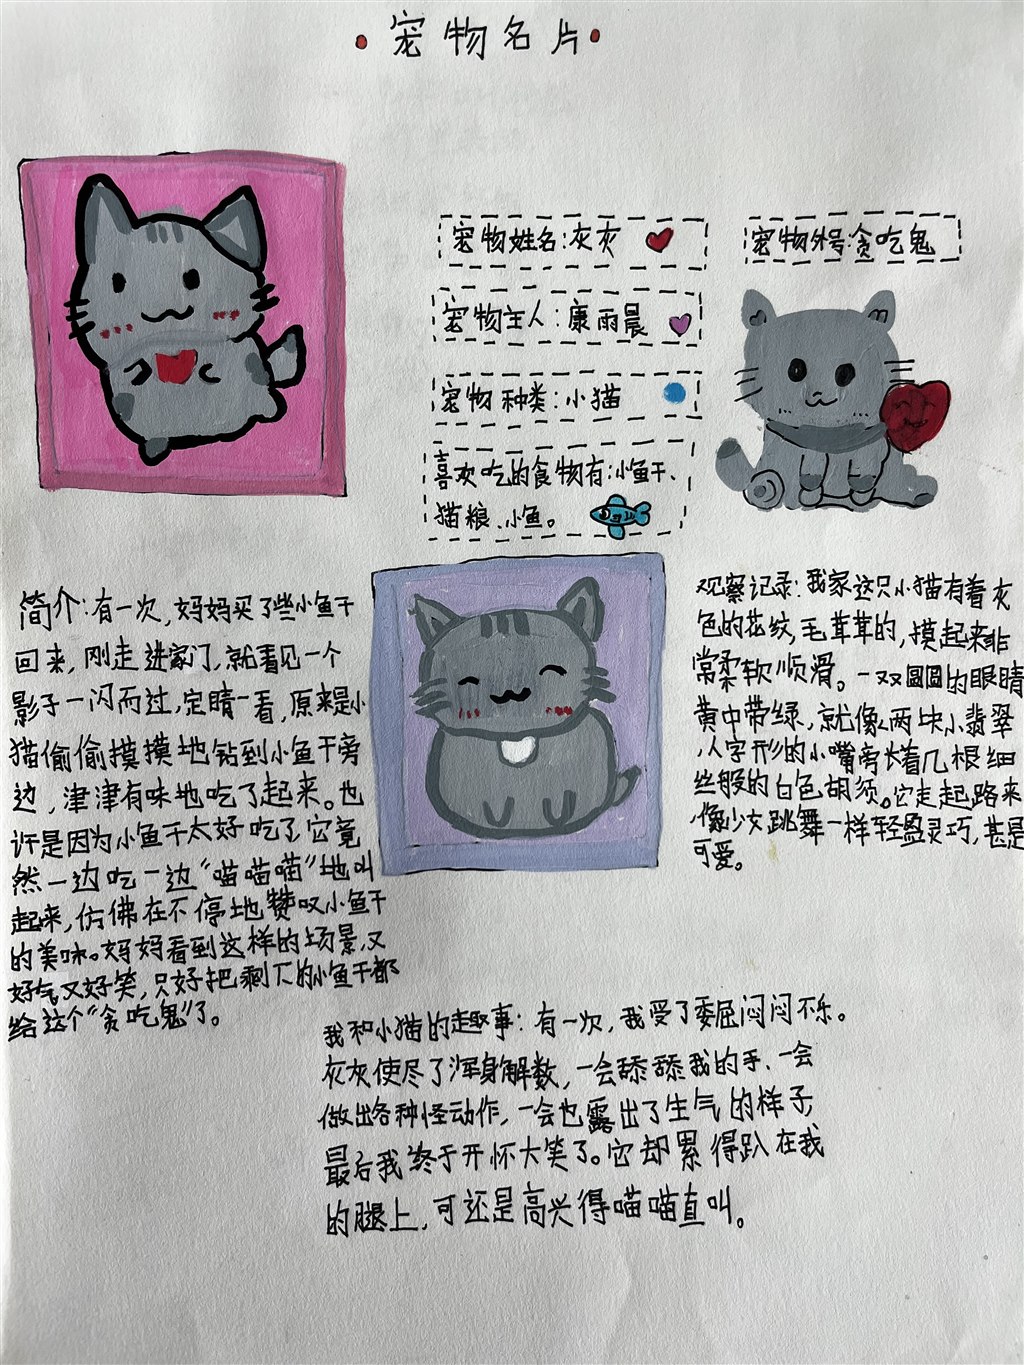 宠物名片
宠物姓名:灰灰
宠物外号:贪吃鬼
宠物主人:康雨晨
宠物种类:小猫
喜欢吃的食物有:小鱼干、
猫粮、小鱼。
简介:有一次,妈妈买了些小鱼干
回来,刚走进家门,就看见一个
影子一闪而过,定睛一看,原来是小
猫偷偷摸摸地钻到小鱼干旁
边,津津有味地吃了起来。也
许是因为小鱼干太好吃了,它竟
然一边吃一边“喵喵喵”地叫
起来,仿佛在不停地赞叹小鱼干
的美味。妈妈看到这样的场景,又
好气又好笑,只好把剩下的小鱼干都
给这个“贪吃鬼”了。
观察记录:我家这只小猫有着灰
色的花纹,毛茸茸的,摸起来非
常柔软顺滑。一双圆圆的眼睛
黄中带绿,就像两块小翡翠
,人字形的小嘴旁长着几根细
丝般的白色胡须。它走起路来
,像少女跳舞一样轻盈灵巧,甚是
可爱。
我和小猫的趣事:有一次,我受了委屈闷闷不乐。
灰灰使尽了浑身解数,一会舔舔我的手、一会
做出各种怪动作,一会也露出了生气的样子,
最后我终于开怀大笑了。它却累得趴在我
的腿上,可还是高兴得喵喵直叫。